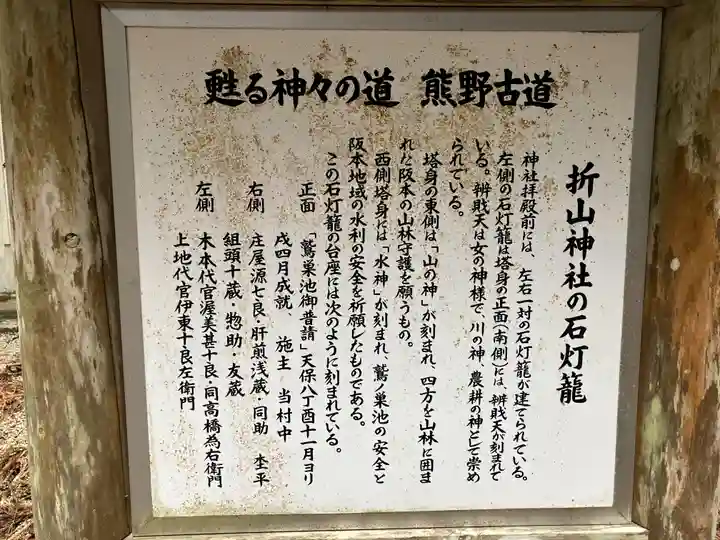 甦る神々の道 熊野古道
折山神社の石灯籠
神社拝殿前には、左右一対の石灯籠が建てられている。
左側の石灯籠は塔身の正面(南側)には、辨財天が刻まれて
いる。辨財天は女の神様で、川の神、農耕の神として崇め
られている。
塔身の東側は「山の神」が刻まれ、四方を山林に囲ま
れた阪本の山林守護を願うもの。
西側塔身には「水神」が刻まれ、鷲ノ巣池の安全と
阪本地域の水利の安全を祈願したものである。
この石灯籠の台座には次のように刻まれている。
正面 「鷲巣池御普請」天保八丁酉十一月ヨリ
戌四月成就 施主 当村中
右側 庄屋源七良・肝煎浅蔵・同助 圡平
組頭十蔵 惣助・友蔵
左側 木本代官渥美甚十良・同高橋為右衛門
上地代官伊東十良左衛門